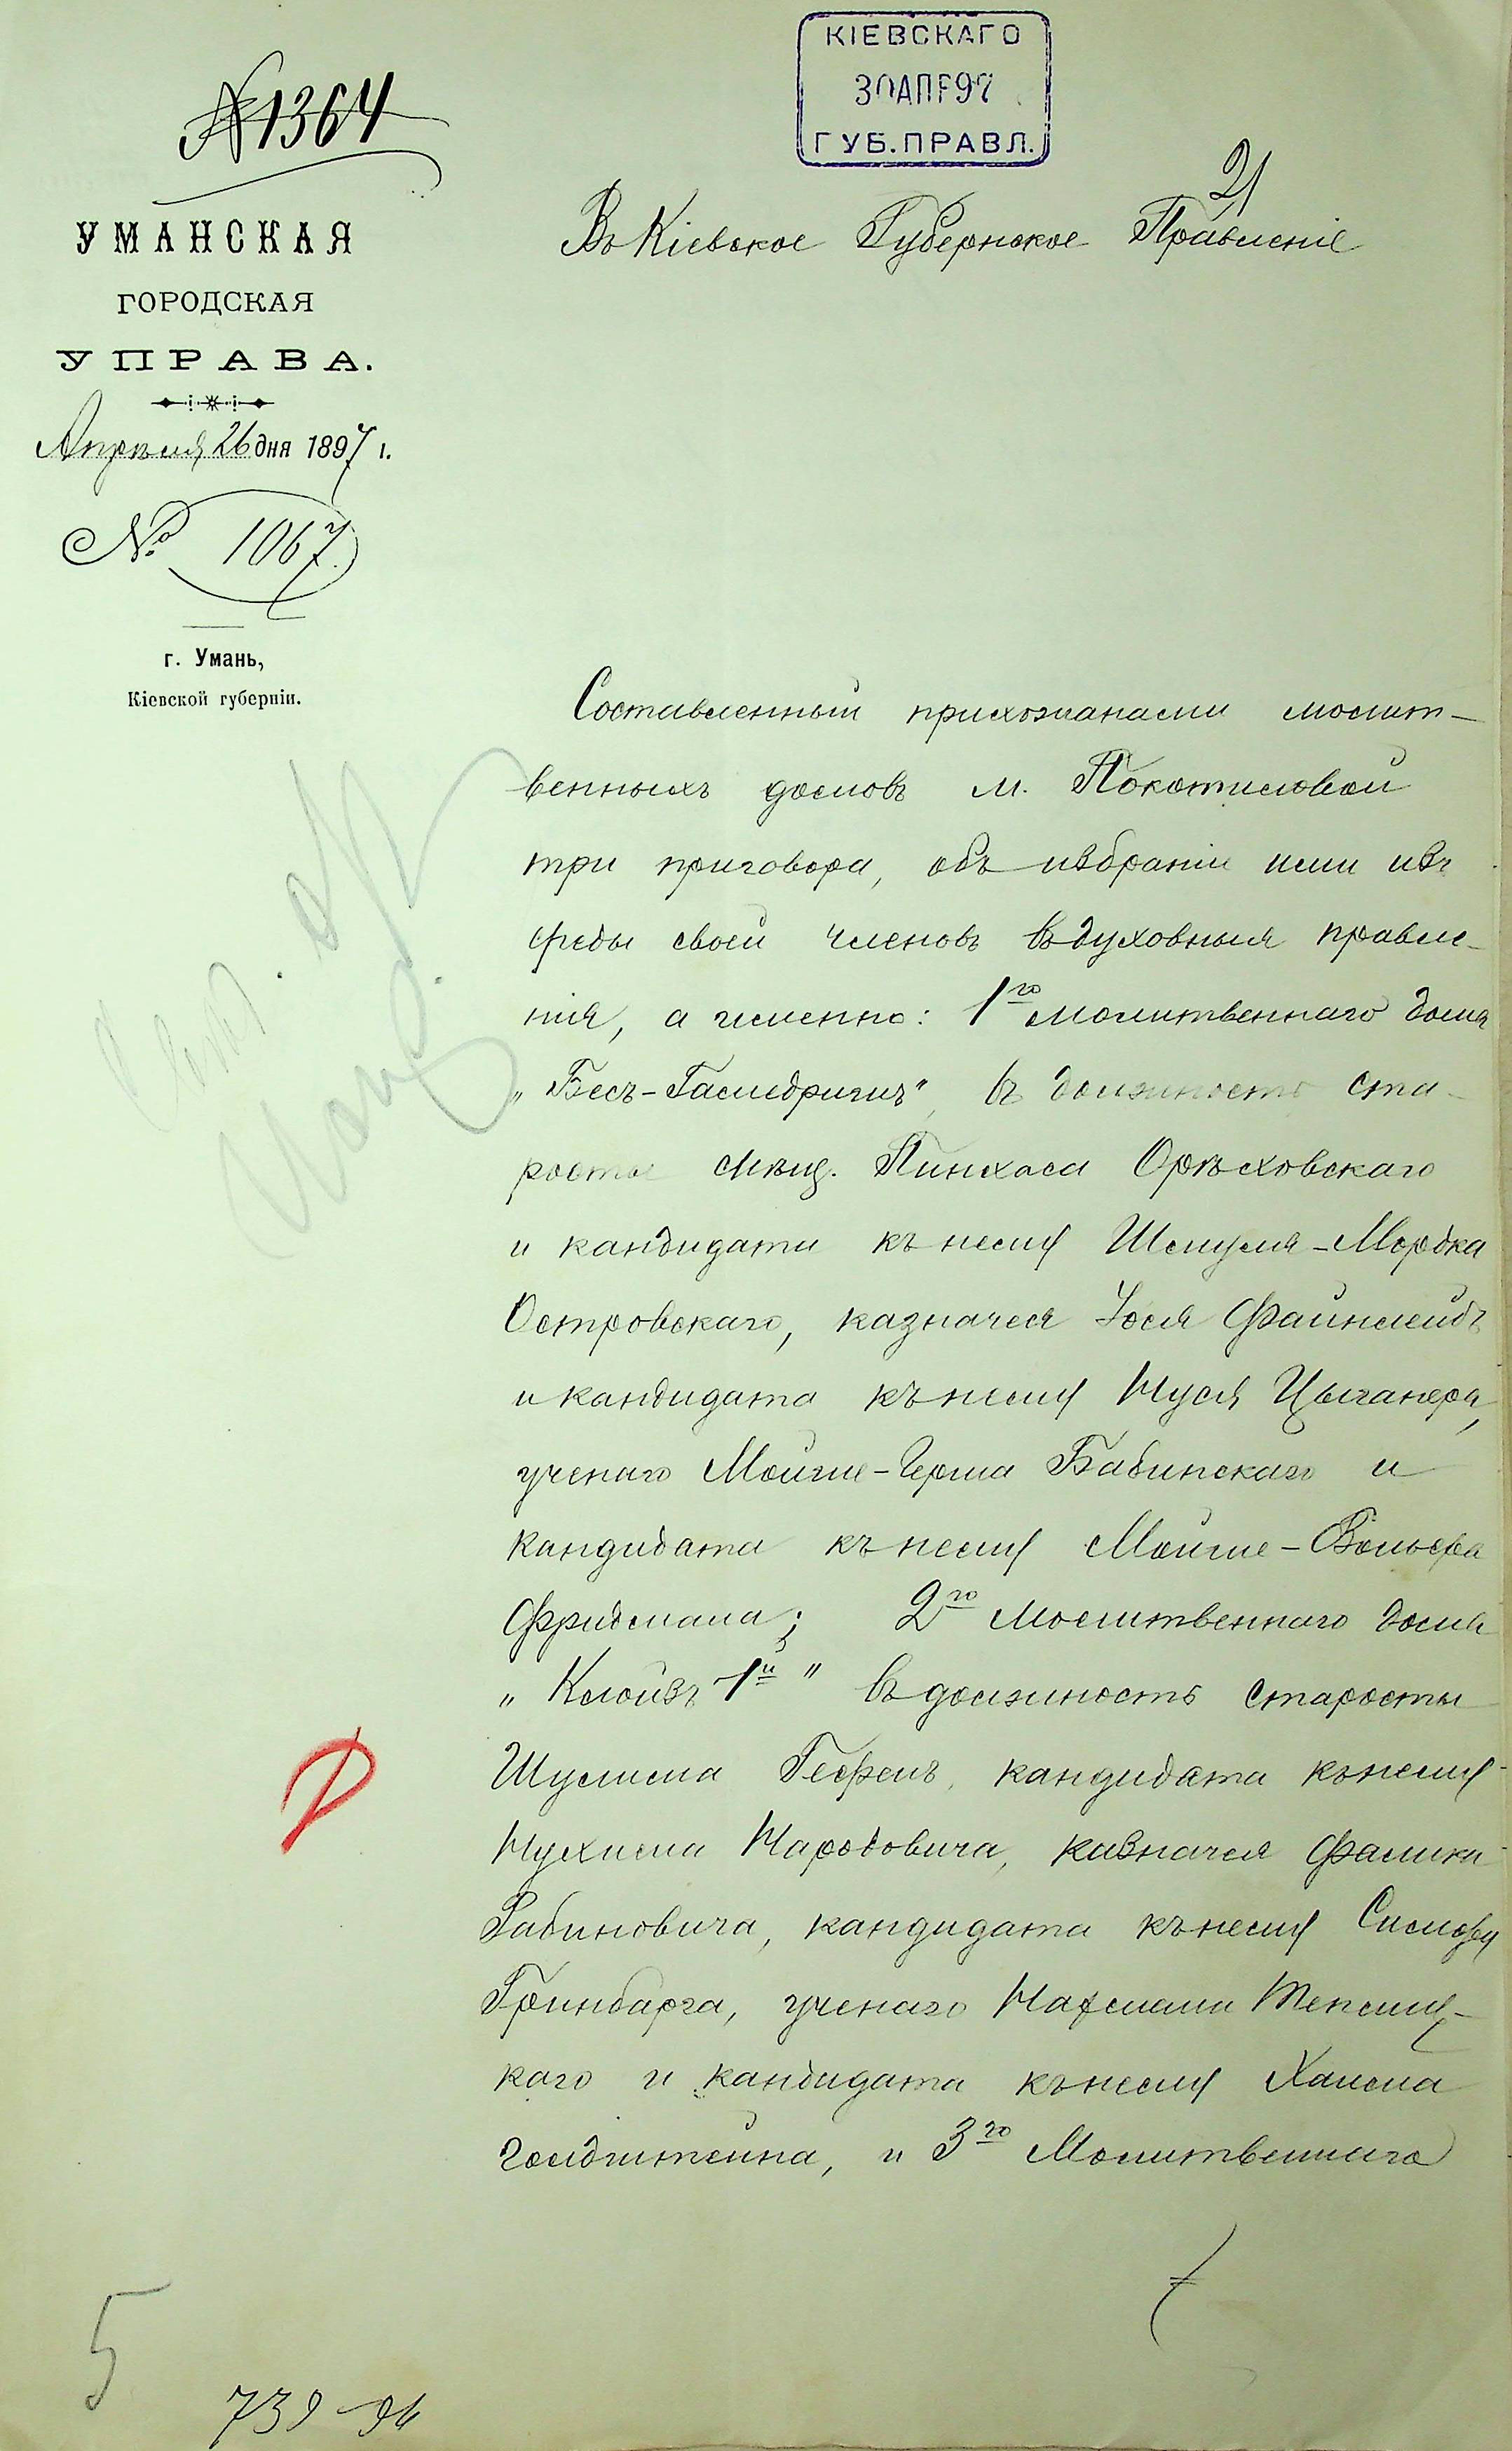 КІЕВСКАГО
30 АПР 97
ГУБ. ПРАВЛ.
№ 1364
21
УМАНСКАЯ
ГОРОДСКАЯ
УПРАВА.
Апрѣля 26 дня 1897 г.
№ 1067.
г. Умань,
Кіевской губерніи.
Въ Кіевское Губернское Правленіе
Составленный прихожанами молит-
венныхъ домовъ м. Покотиловой
три приговора, объ избраніи ими изъ
среды своей членовъ въ духовныя правле-
нія, а именно: 1го молитвеннаго дома
„Бесъ-Гамедришъ", въ должность ста-
росты мѣщ. Пинхаса Орѣховскаго
и кандидата къ нему Шмуля-Мордка
Островскаго, казначея Іося Файнлейбъ
и кандидата къ нему Нуся Цыганера,
ученаго Мойше-Герша Бабинскаго и
кандидата къ нему Мойше-Вольфа
Фридмана; 2го молитвеннаго дома
„Клойзъ 1й" въ должность старосты
Шулима Гефенъ, кандидата къ нему
Нухима Народовича, казначея Фалика
Рабиновича, кандидата къ нему
Гринбарга, ученаго Нахмана Теплиц-
каго и кандидата къ нему Хаима
Голдштейна, и 3го Молитвеннаго
5
739-96